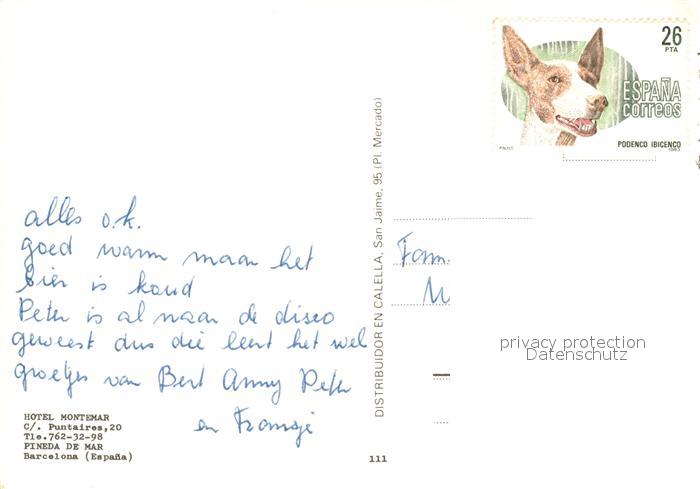 26
PTA
ESPAÑA
correos
PODENCO IBICENCO
1983
alles o.k.
goed warm maar het
bier is koud
Peter is al naar de disco
geweest dus die leert het wel
groetjes van Bert Anny Peter
en Fransje
HOTEL MONTEMAR
C/. Puntaires,20
Tle.762-32-98
PINEDA DE MAR
Barcelona (España)
DISTRIBUIDOR EN CALELLA, San Jaime, 95 (Pl. Mercado)
111
Fam.
privacy protection
Datenschutz